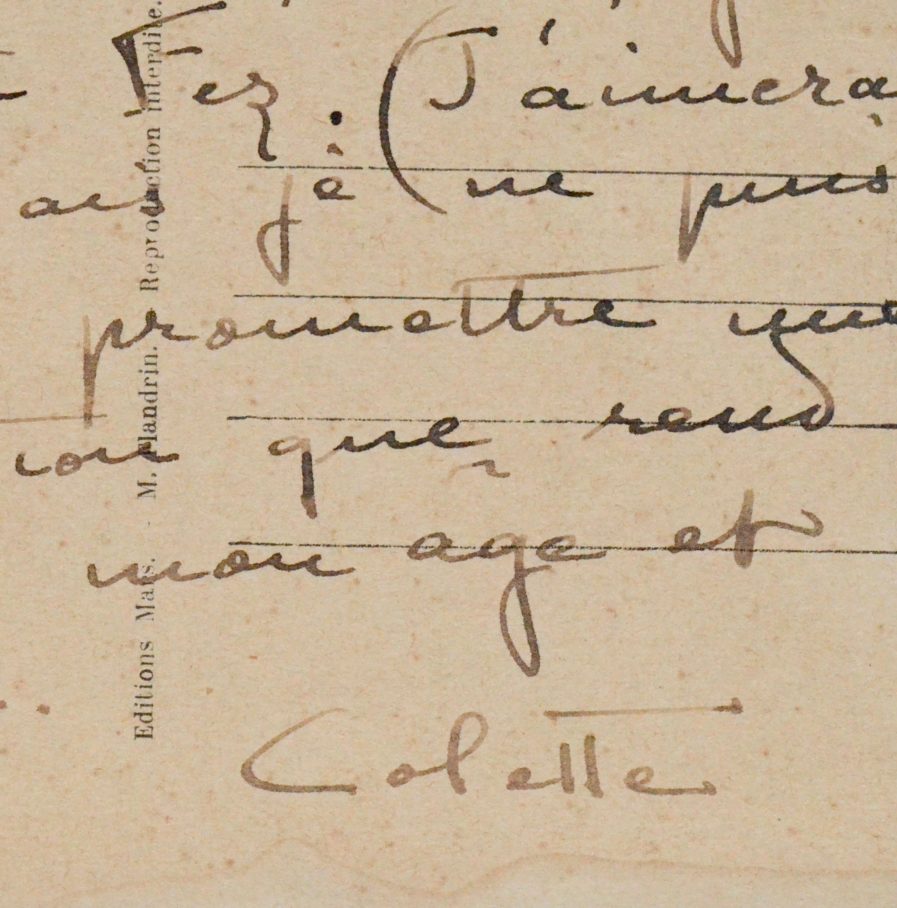 Fez. (J'aimera
je ne puis
promettre une
ion que rend
mon age et
Colette
Editions Mars. - M. Flandrin. Reproduction interdite.